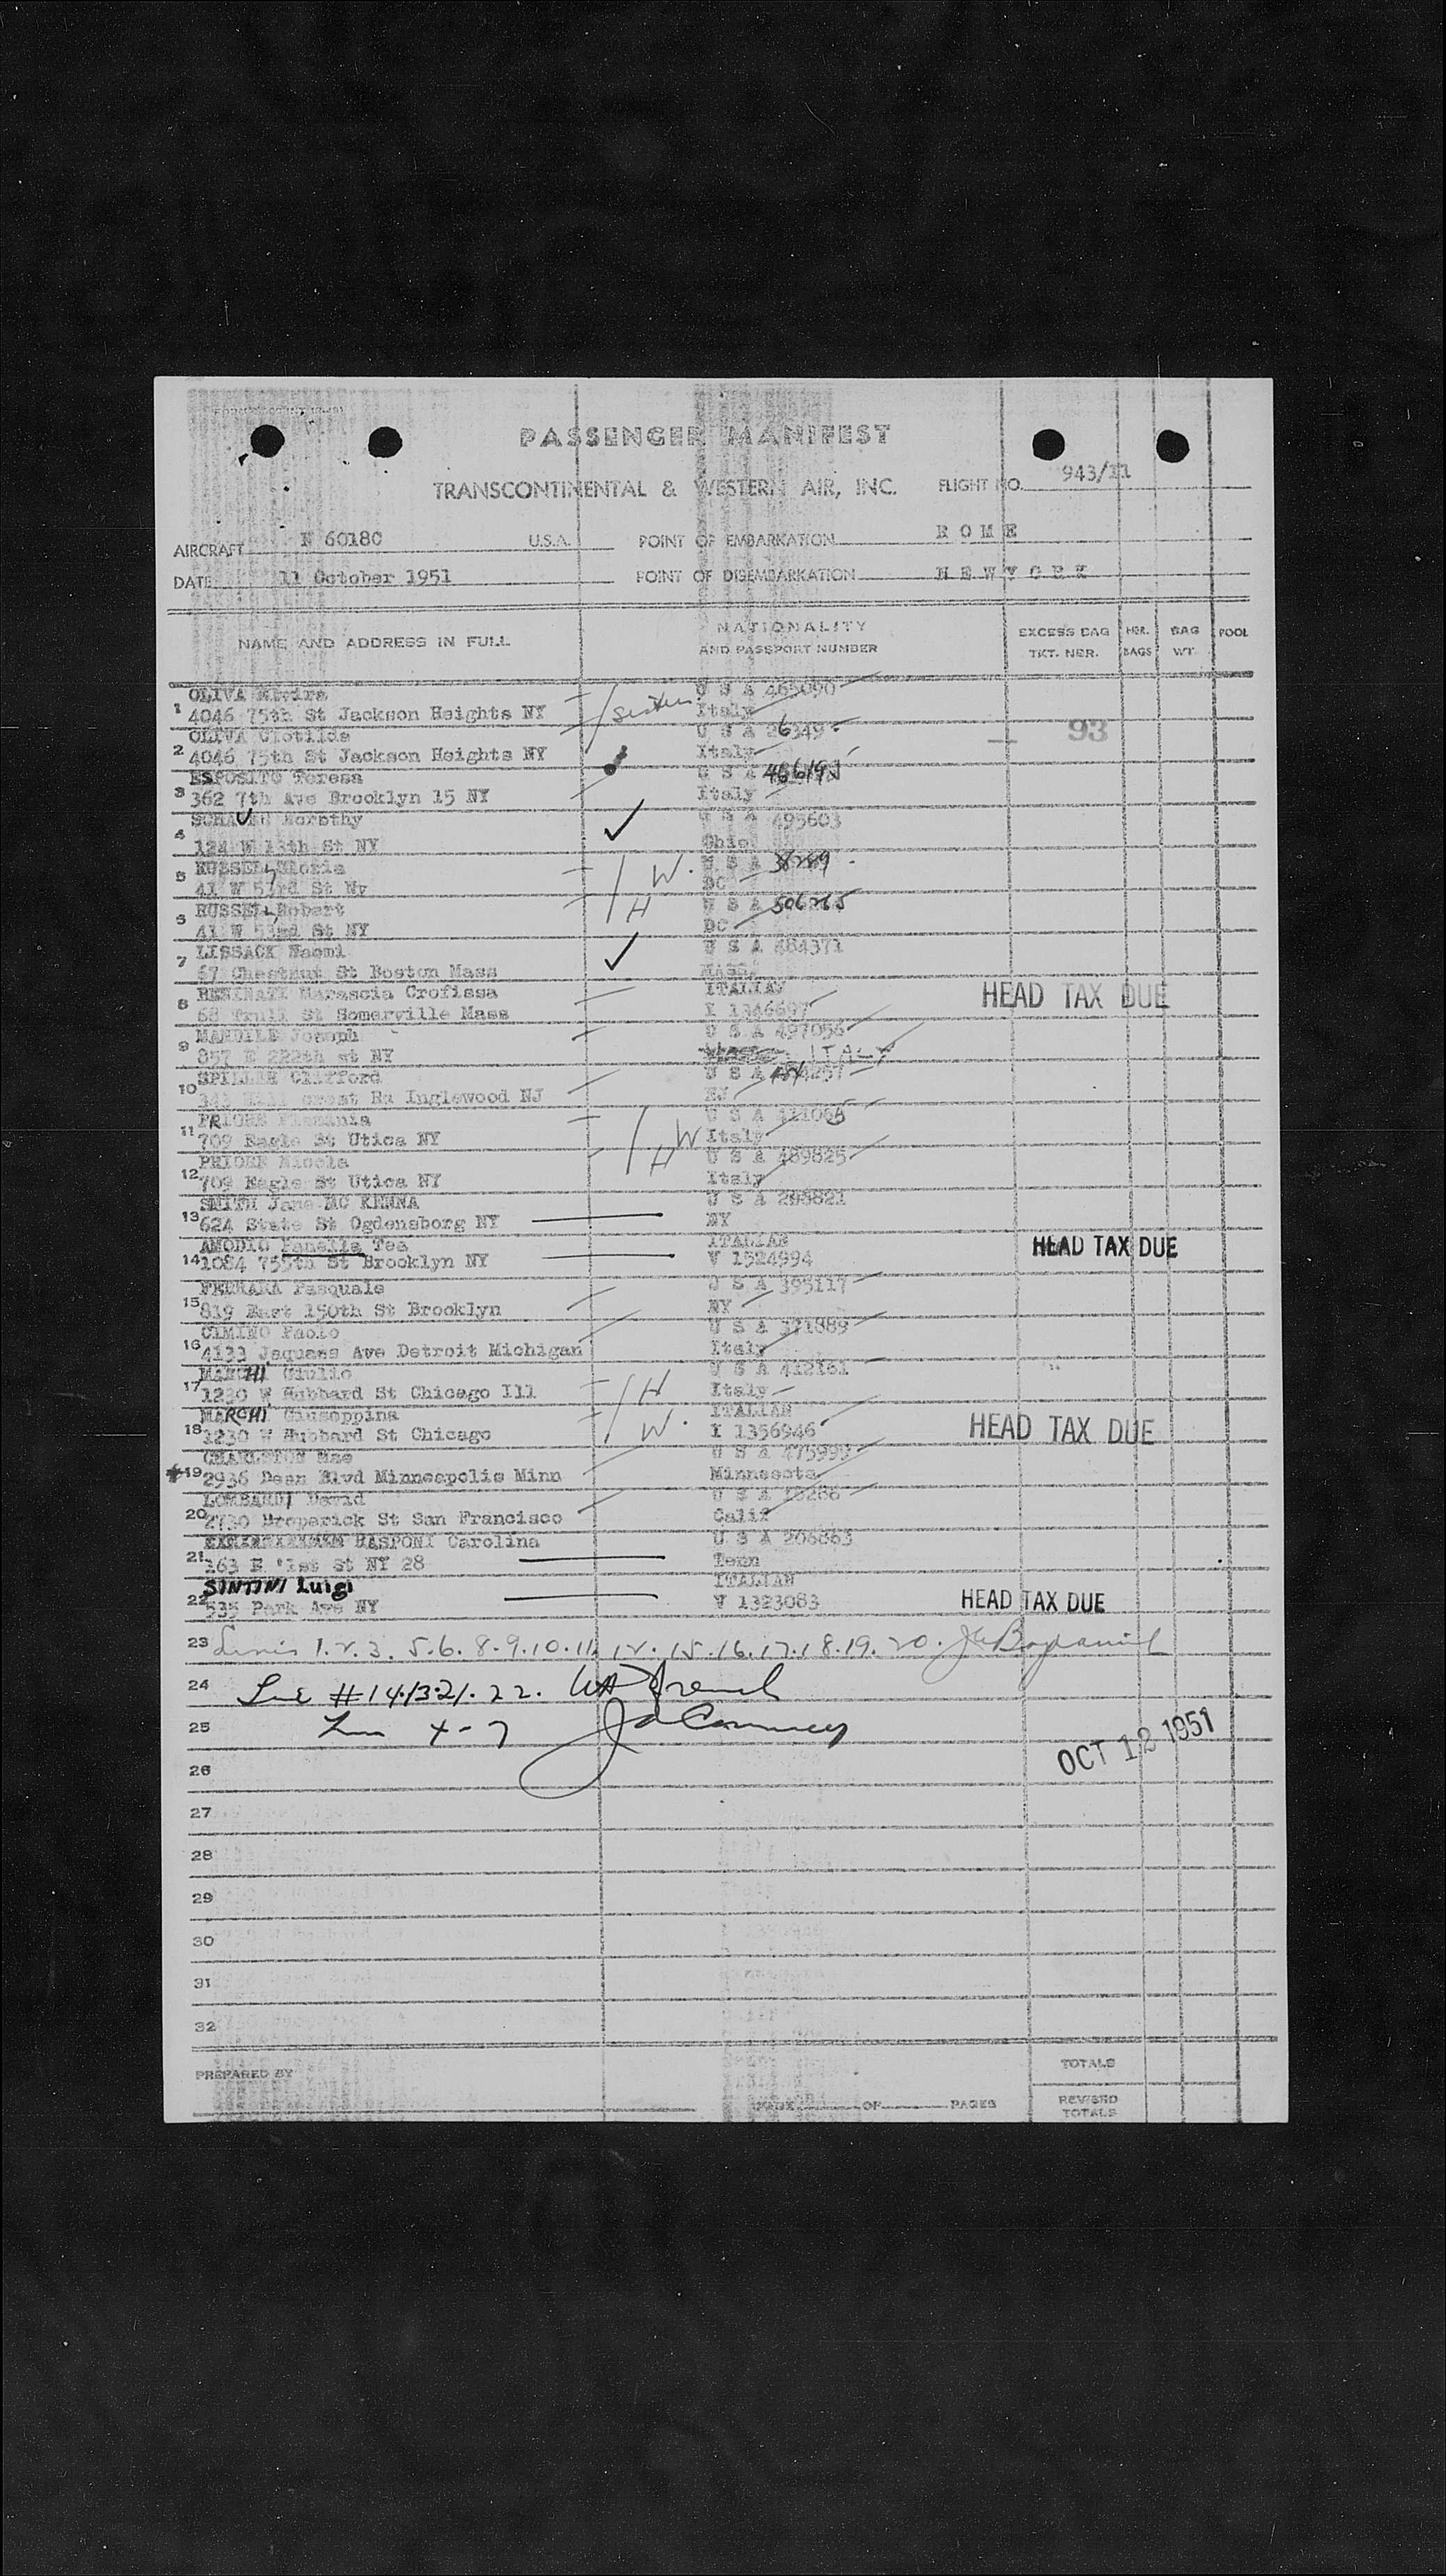 PASSENGER MANIFEST
TRANSCONTINENTAL & WESTERN AIR, INC. FLIGHT NO. 943/11
AIRCRAFT N 60180 U.S.A. POINT OF EMBARKATION ROME
DATE 11 October 1951 POINT OF DISEMBARKATION NEWYORK
NAME AND ADDRESS IN FULL
NATIONALITY
AND PASSPORT NUMBER
EXCESS BAG
TKT. NBR.
NBR.
BAGS
BAG
WT.
POOL
OLIVA U S A 465090
1 4046 75th St Jackson Heights NY Italy
OLIVA Clotilde U S A 26349
2 4046 75th St Jackson Heights NY Italy
93
ESPOSITO Teresa U S A
3 362 7th Ave Brooklyn 15 NY Italy
Dorothy U S A 495603
4 124 W 13th St NY Ohio
RUSSELL Gloria W. U S A
5 41 W 53rd St Ny DC
RUSSELL Robert H U S A
6 41 W 53rd St NY DC
LISSACK Naomi U S A 484371
7 67 Chestnut St Boston Mass Mass
Marascia Crofissa ITALIAN
8 68 Trull St Somerville Mass I 1346697
HEAD TAX DUE
Joseph U S A 497056
9 857 E 222th st NY ITALY
Clifford U S A
10 Inglewood NJ NJ
PRIORE U S A
11 709 Eagle St Utica NY W Italy
PRIORE Nicola H U S A 489825
12 709 Eagle St Utica NY Italy
SMITH Jane MC KENNA U S A 298821
13 624 State St Ogdensborg NY NY
AMODIO Panella Tea ITALIAN
14 1084 755th St Brooklyn NY V 1524994
HEAD TAX DUE
FERRARA Pasquale U S A 395117
15 819 East 150th St Brooklyn NY
CIMINO Paolo U S A 371889
16 4133 Jaquans Ave Detroit Michigan Italy
MARCHI Giulio U S A 412161
17 1230 W Hubbard St Chicago Ill H Italy
MARCHI Giuseppina ITALIAN
18 1230 W Hubbard St Chicago W. I 1356946
HEAD TAX DUE
CHARLSTON Mae U S A 475999
19 2936 Dean Blvd Minneapolis Minn Minnesota
LOMBARDI David U S A
20 2730 Broperick St San Francisco Calif
RASPONI Carolina U S A 206863
21 163 E '1st St NY 28 Tenn
SINTINI Luigi ITALIAN
22 535 Park Ave NY V 1323083
HEAD TAX DUE
23 1. 2. 3. 5. 6. 8. 9. 10. 11. 12. 15. 16. 17. 18. 19. 20.
24 # 14. 13. 21. 22.
25 4-7
OCT 12 1951
26
27
28
29
30
31
32
PREPARED BY
TOTALS
PAGE OF PAGES
REVISED
TOTALS